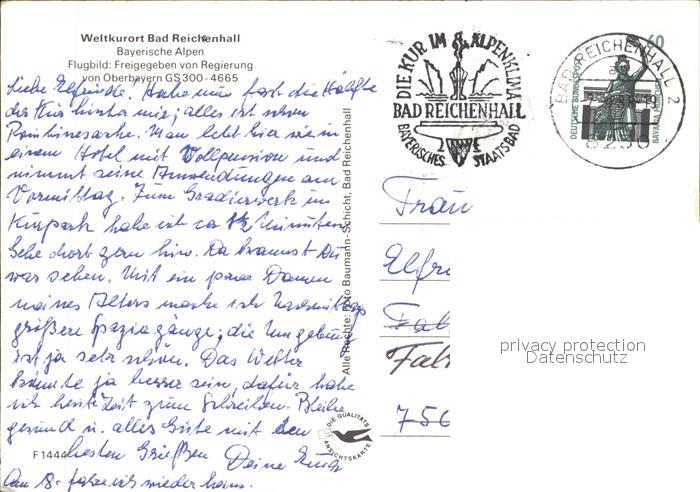 Weltkurort Bad Reichenhall
Bayerische Alpen
Flugbild: Freigegeben von Regierung
von Oberbayern GS 300-4665
Liebe Elfriede! Habe nun fast die Hälfte
der Kur hinter mir; alles ist schon
Routinesache. Man lebt hier wie in
einem Hotel mit Vollpension und
nimmt seine Anwendungen am
Vormittag. Zum Gradierwerk im
Kurpark habe ich ca Minuten
Gehe dort gern hin. Da kannst Du
was sehen. Mit ein paar Damen
meines Alters mache ich nachmittags
größere Spaziergänge; die Umgebung
ist ja sehr schön. Das Wetter
könnte ja besser sein, dafür habe
ich heute Zeit zum Schreiben. Bleibe
gesund u. alles Gute mit den
besten Grüßen Deine
Am 18. fahre ich wieder heim.
F 1444
Alle Rechte: Foto Baumann-Schicht, Bad Reichenhall
DIE QUALITÄTS
ANSICHTSKARTE
DIE KUR IM ALPENKLIMA
BAD REICHENHALL
BAYERISCHES STAATSBAD
BAD REICHENHALL 2
8230
60
DEUTSCHE BUNDESPOST
BAVARIA MÜNCHEN
Frau
Elfr
Fal
Fah
756
privacy protection
Datenschutz